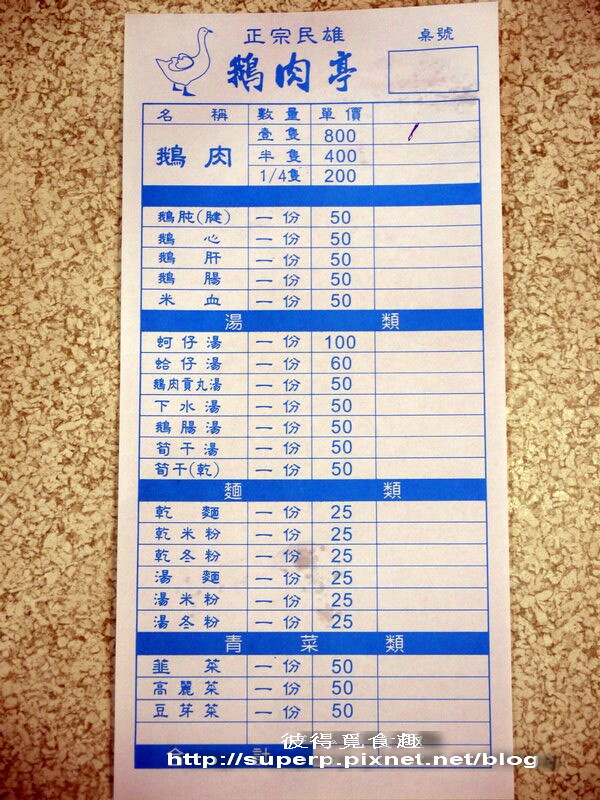 正宗民雄
桌號
鵝肉亭
名稱 數量 單價
鵝肉 壹隻 800
半隻 400
1/4隻 200
鵝肫(腱) 一份 50
鵝心 一份 50
鵝肝 一份 50
鵝腸 一份 50
米血 一份 50
湯類
蚵仔湯 一份 100
蛤仔湯 一份 60
鵝肉貢丸湯 一份 50
下水湯 一份 50
鵝腸湯 一份 50
筍干湯 一份 50
筍干(乾) 一份 50
麵類
乾麵 一份 25
乾米粉 一份 25
乾冬粉 一份 25
湯麵 一份 25
湯米粉 一份 25
湯冬粉 一份 25
青菜類
韮菜 一份 50
高麗菜 一份 50
豆芽菜 一份 50
合計
彼得覓食趣
http://superp.pixnet.net/blog